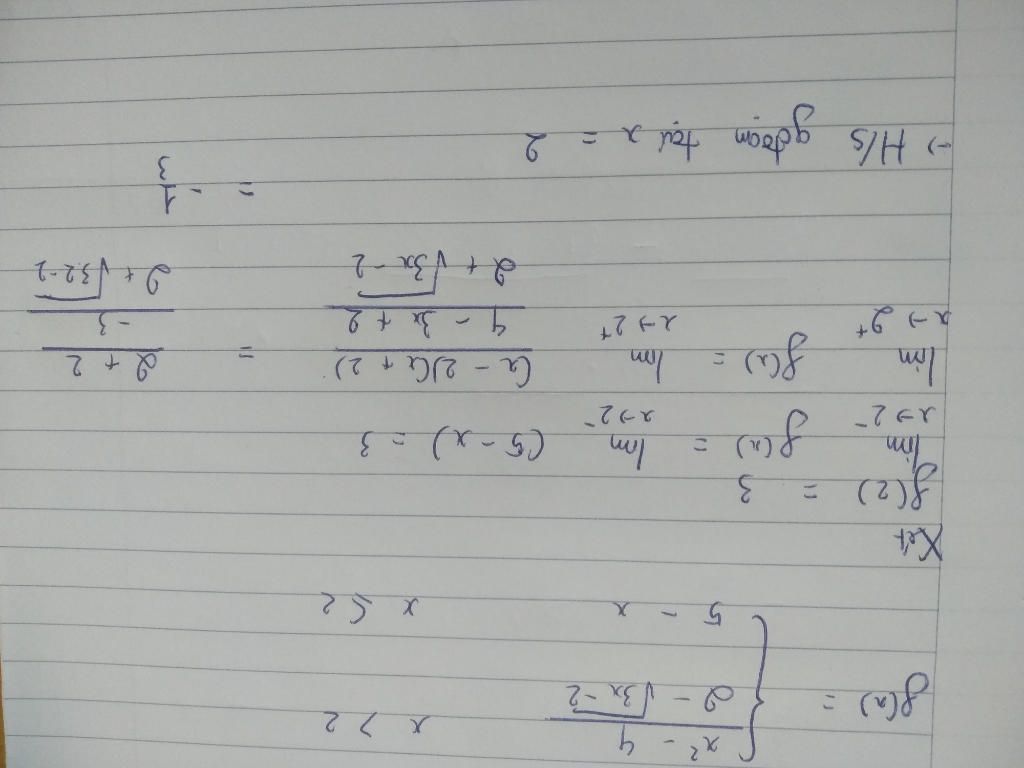 f(x) = { (x² - 4)/(2 - √3x-2) x > 2
5 - x x ≤ 2
Xét
f(2) = 3
lim x→2⁻ f(x) = lim x→2⁻ (5 - x) = 3
lim x→2⁺ f(x) = lim x→2⁺ ((x - 2)(x + 2))/((4 - 3x + 2)/(2 + √3x-2)) = (2 + 2)/((-3)/(2 + √3.2-2))
= -1/3
→ H/s gđoạn tại x = 2